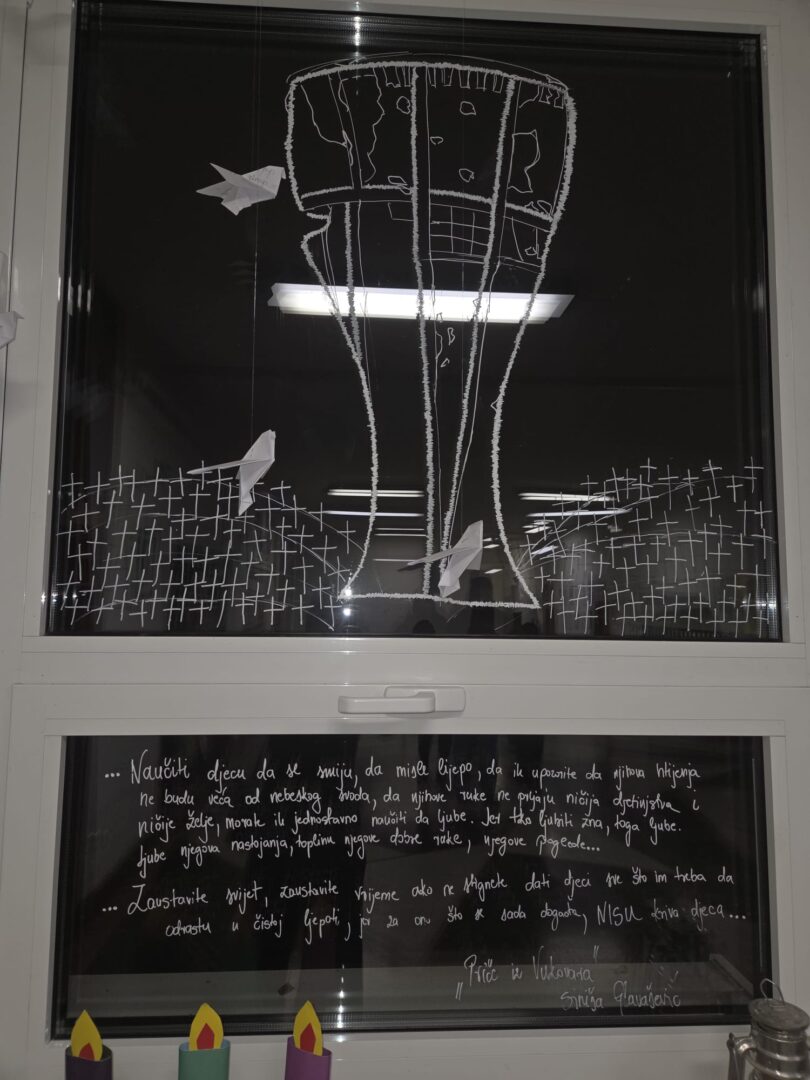 ... Naučiti djecu da se smiju, da misle lijepo, da ih upozorite da njihova htijenja
ne budu veća od nebeskog svoda, da njihove ruke ne prljaju ničija djetinjstva i
ničije želje, morate ih jednostavno naučiti da ljube. Jer tko ljubiti zna, toga ljube.
ljube njegova nastojanja, toplinu njegove dobre ruke, njegove poglede...
... Zaustavite svijet, zaustavite vrijeme ako ne stignete dati djeci sve što im treba da
odrastu u čistoj ljepoti, jer za ono što se sada događa, NISU kriva djeca...
"Priče iz Vukovara"
Siniša Glavašević